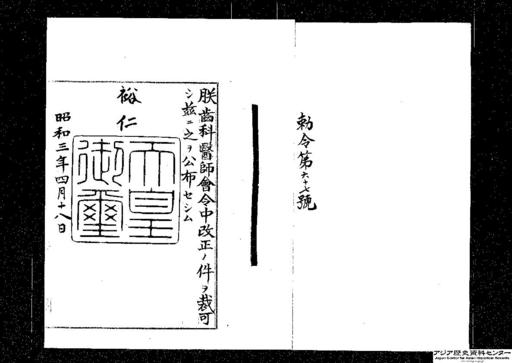 勅令第六十七號
朕齒科醫師會令中改正ノ件ヲ裁可
シ茲ニ之ヲ公布セシム
裕仁
天皇
御璽
昭和三年四月十八日
アジア歴史資料センター
Japan Center for Asian Historical Records